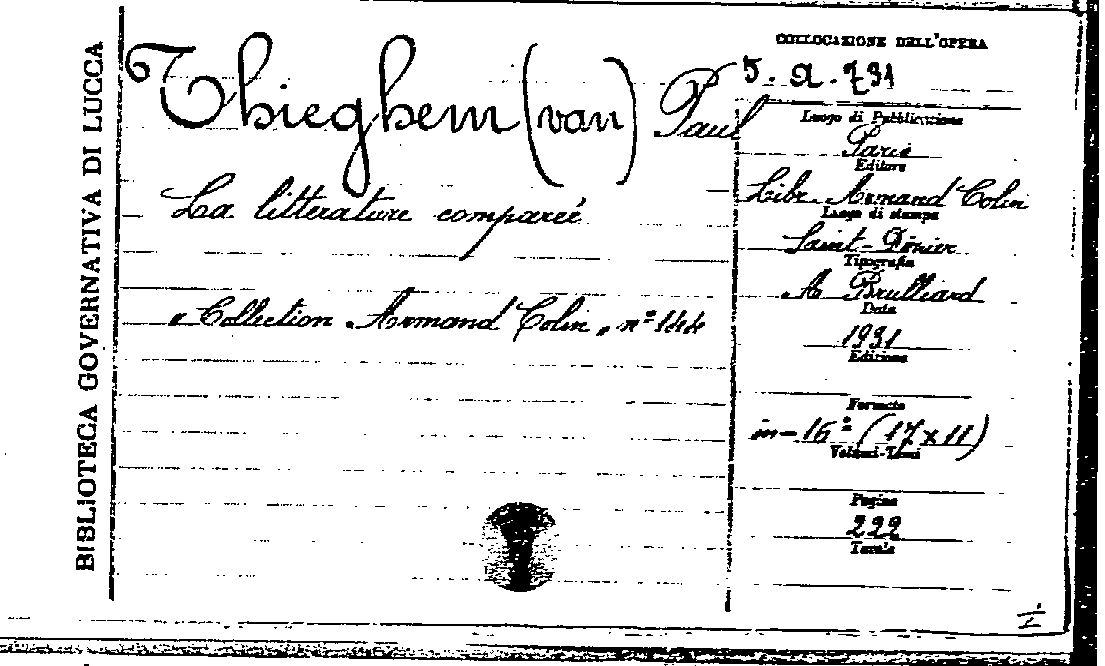 BIBLIOTECA GOVERNATIVA DI LUCCA
Thieghem (van) Paul
La litterature comparée
"Collection Armand Colin" nº 144
COLLOCAZIONE DELL'OPERA
5. a. 731
Luogo di Pubblicazione
Paris
Editore
Libr. Armand Colin
Luogo di stampa
Saint-Dinier
Tipografia
A Brulliard
Data
1931
Edizione
Formato
in-16º (17 x 11)
Volumi-Tomi
Pagine
222
Tavole